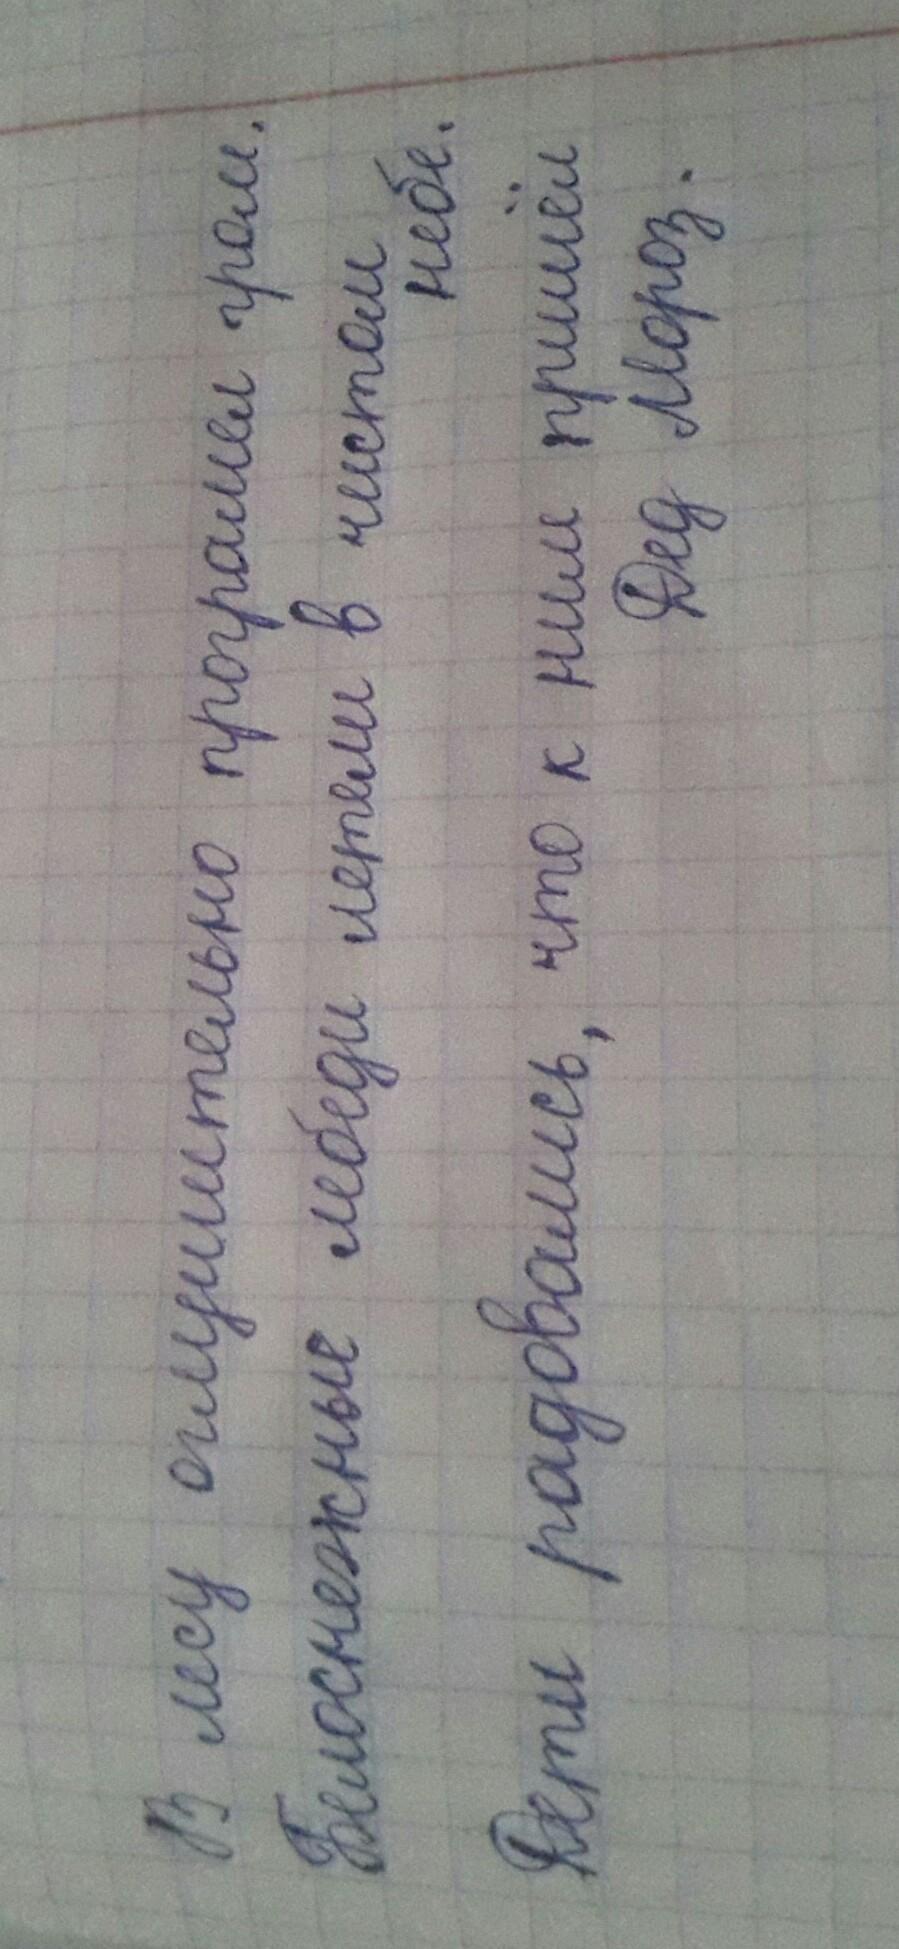 В лесу оглушительно прогремел гром.
Белоснежные лебеди летели в чистом
небе.
Дети радовались, что к ним пришёл
Дед Мороз.